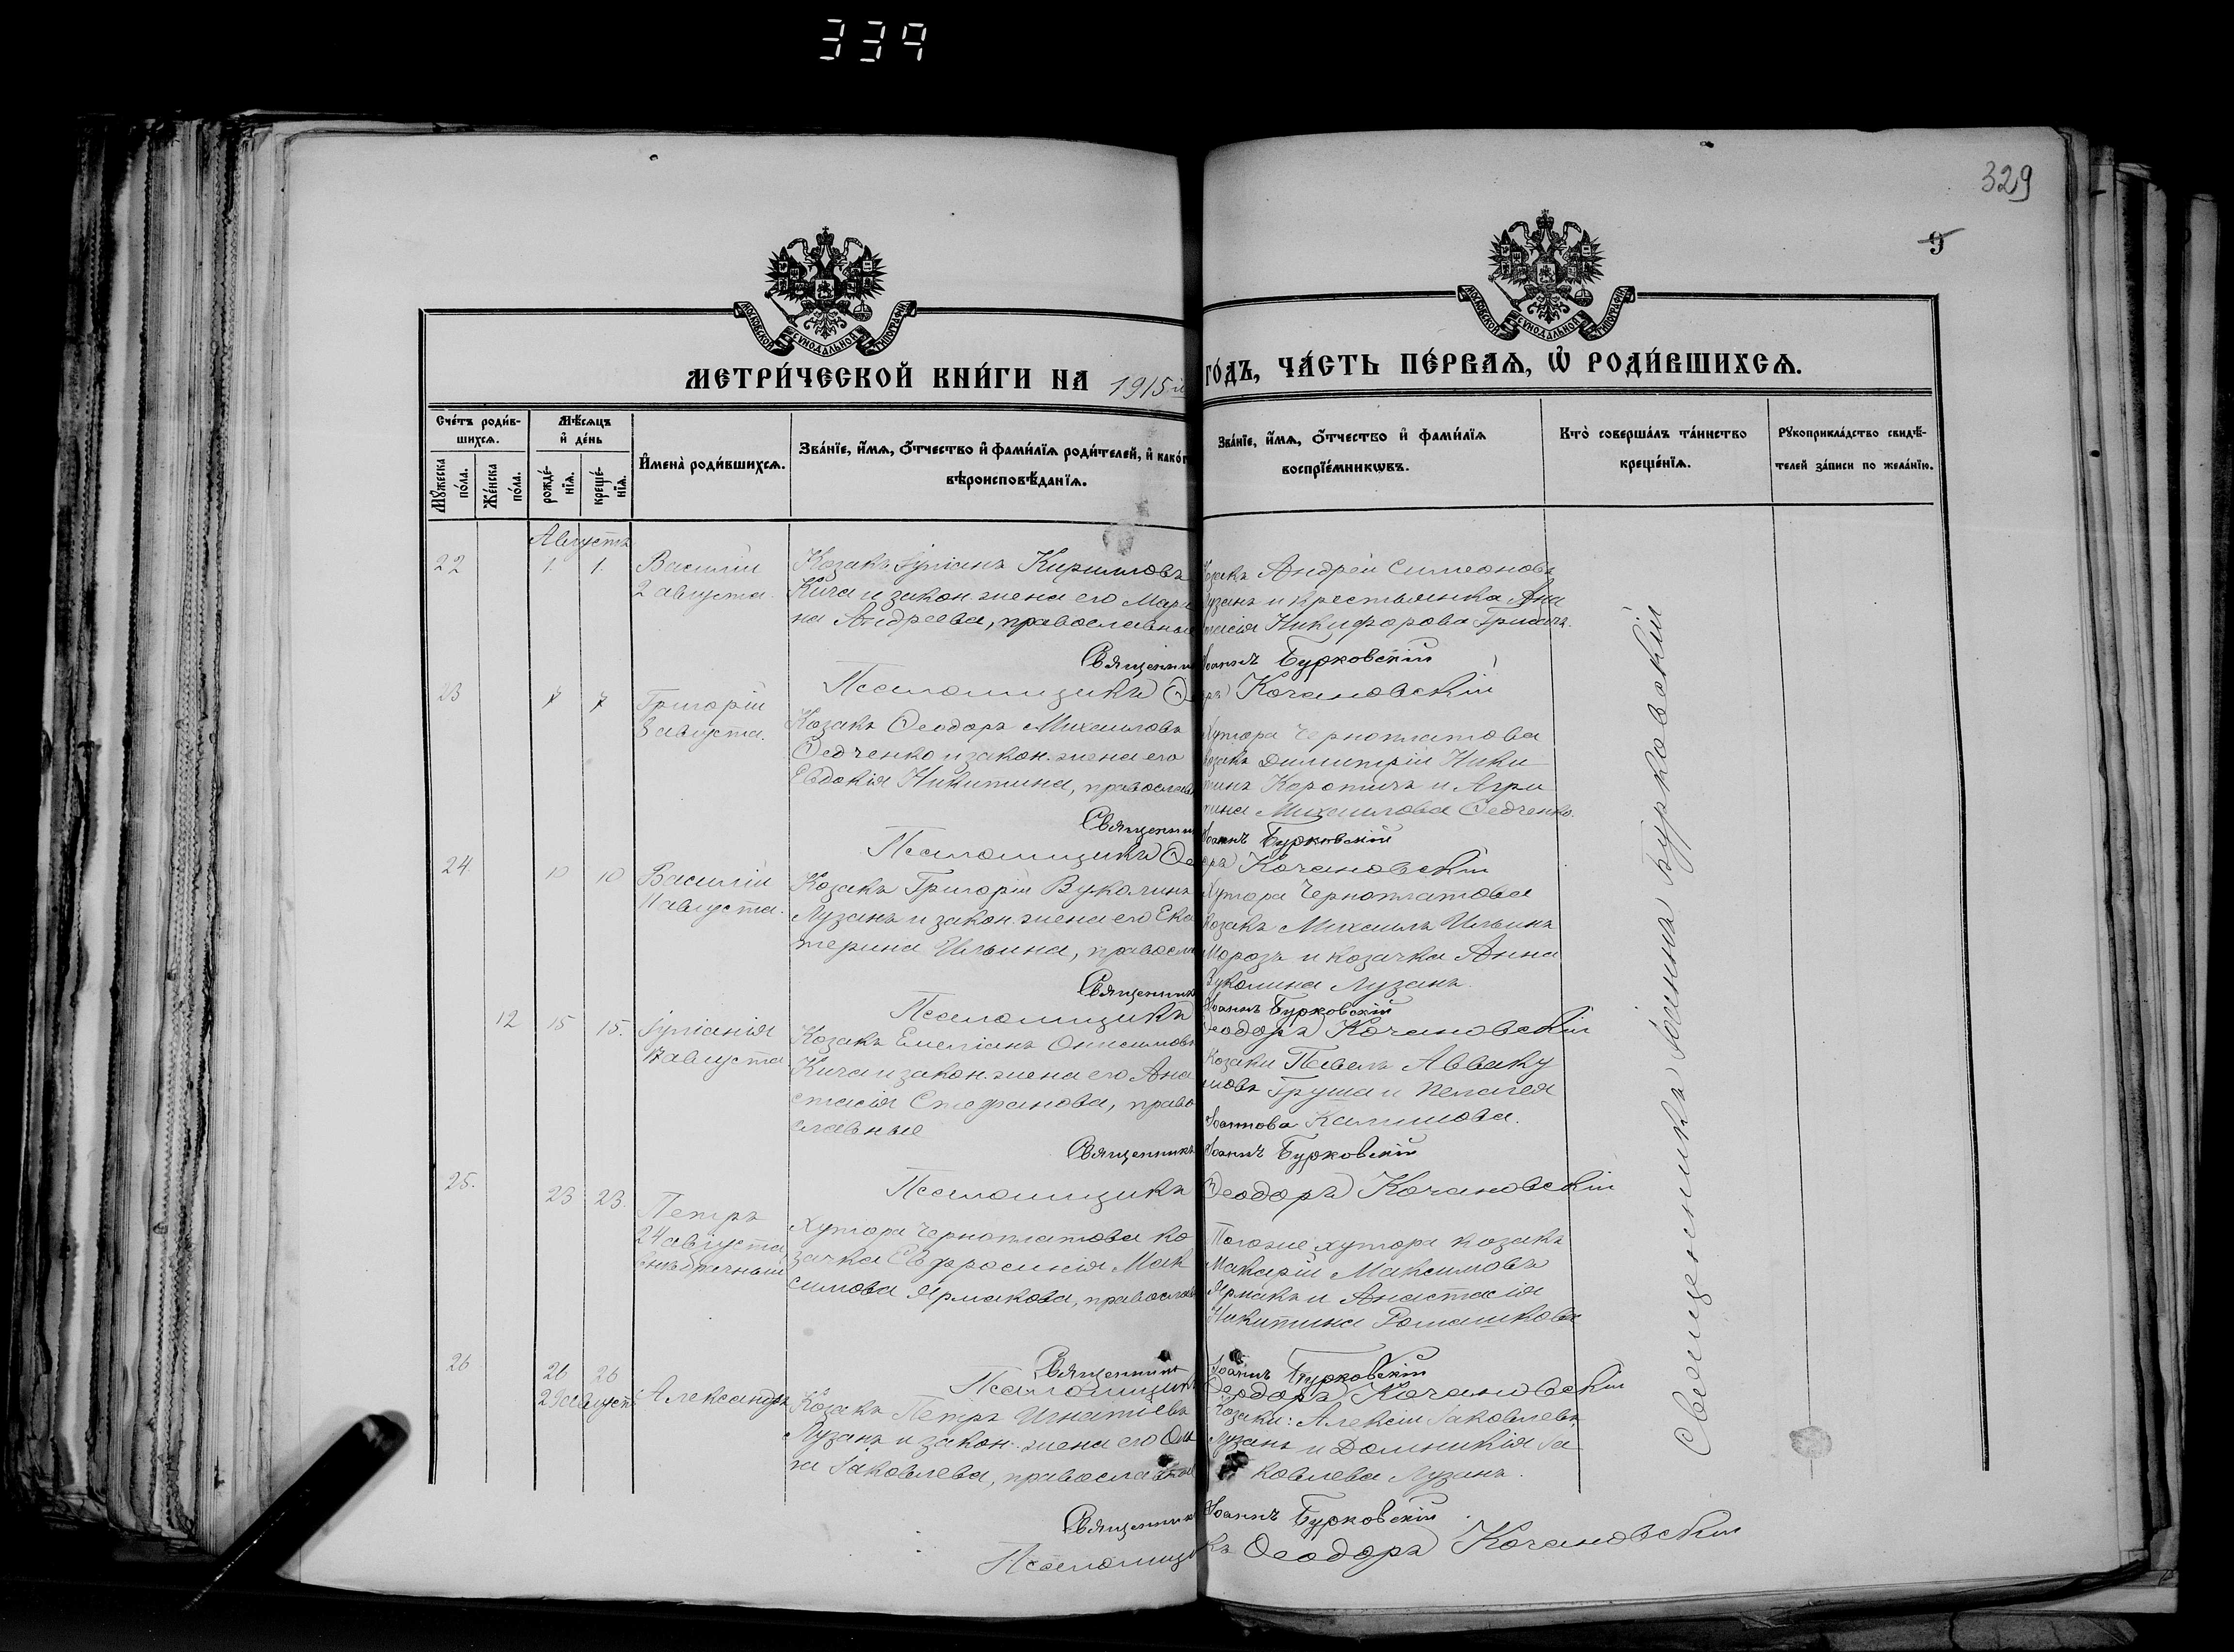 339
329
9
МОСКОВСКОЙ СѴНОДАЛЬНОЙ ТИПОГРАФІИ
МОСКОВСКОЙ СѴНОДАЛЬНОЙ ТИПОГРАФІИ
МЕТРИ́ЧЕСКОЙ КНИ́ГИ НА 1915й ГО́ДЪ, ЧА́СТЬ ПЕ́РВАѦ, Ѡ҆ РОДИ́ВШИХСѦ.
Сче́тъ роди́в-
шихсѧ.
Мꙋ́жеска по́ла.
Же́нска по́ла.
Мѣ́сѧцъ
и҆ де́нь
рожде́-
нїѧ.
креще́-
нїѧ.
И҆мена̀ роди́вшихсѧ.
Зва́нїе, и҆́мѧ, ѻ҆́тчество и҆ фами́лїѧ роди́телей, и҆ како́г
вѣроисповѣ́данїѧ.
Зва́нїе, и҆́мѧ, ѻ҆́тчество и҆ фами́лїѧ
воспрїе́мникѡвъ.
Кто̀ соверша́лъ та́инство
креще́нїѧ.
Рꙋкоприкла́дство свидѣ́-
телей за́писи по жела́нїю.
Августъ
22 1. 1. Василій
2 августа.
Козакъ Іуліанъ Кирилловъ
Кича и закон. жена его Мари
на Андреева, православные
Козакъ Андрей Симеоновъ
Лузанъ и крестьянка Ана
стасія Никифорова
Священник Іоаннъ Бурковскій
Псаломщикъ Ѳеодоръ Кочановскій
23 7 7 Григорій
8 августа.
Козакъ Ѳеодоръ Михаиловъ
Ѳедченко и закон. жена его
Евдокія Никитина, православ
Хутора Черноплатова
козакъ Димитрій Ники
тинъ Коротичъ и Агри
пина Михаилова Ѳедченко.
Священник Іоаннъ Бурковскій
Псаломщикъ Ѳеодоръ Кочановскій
24 10 10 Василій
11 августа.
Козакъ Григорій Вуколинъ
Лузанъ и закон. жена его Ека
терина Ильина, правосла
Хутора Черноплатова
козакъ Михаилъ Ильинъ
Морозъ и козачка Анна
Вуколина Лузанъ.
Священникъ Іоаннъ Бурковскій
Псаломщикъ Ѳеодоръ Кочановскій
12 15 15. Іуліанія
17 августа
Козакъ Емеліанъ Онисимовъ
Кича и закон. жена его Ана
стасія Стефанова, право
славные
Козаки Павелъ Авваку
мовъ Груша и Пелагея
Священникъ Іоаннъ Бурковскій
Псаломщикъ Ѳеодоръ Кочановскій
25. 23 23. Петръ
24 августа
внѣбрачный
Хутора Черноплатова ко
зачка Евфросинія Мак
симова Ярмакова, православ
Тогоже хутора козакъ
Макарій Максимовъ
Ярмакъ и Анастасія
Никитина Ромашкова
Священник Іоаннъ Бурковскій
Псаломщикъ Ѳеодоръ Кочановскій
26 26 26 Александръ
29 август
Козакъ Петръ Игнатіевъ
Лузанъ и закон. жена его Оль
га Іаковлева, православные
Козаки: Алексій Іаковлевъ
Лузанъ и Домникія Іа
ковлева Лузанъ.
Священник Іоаннъ Бурковскій
Псаломщикъ Ѳеодоръ Кочановскій
Священникъ Іоаннъ Бурковскій